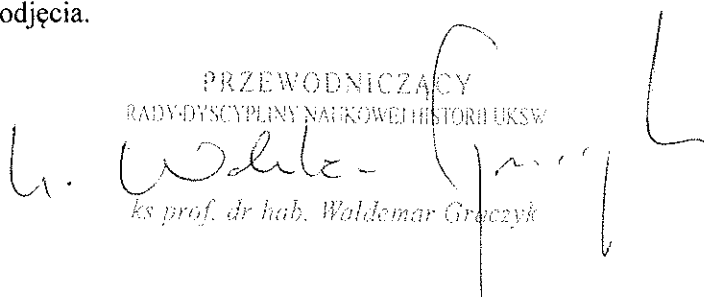 odjęcia.
PRZEWODNICZĄCY
RADY DYSCYPLINY NAUKOWEJ HISTORII UKSW
ks prof. dr hab. Waldemar Graczyk